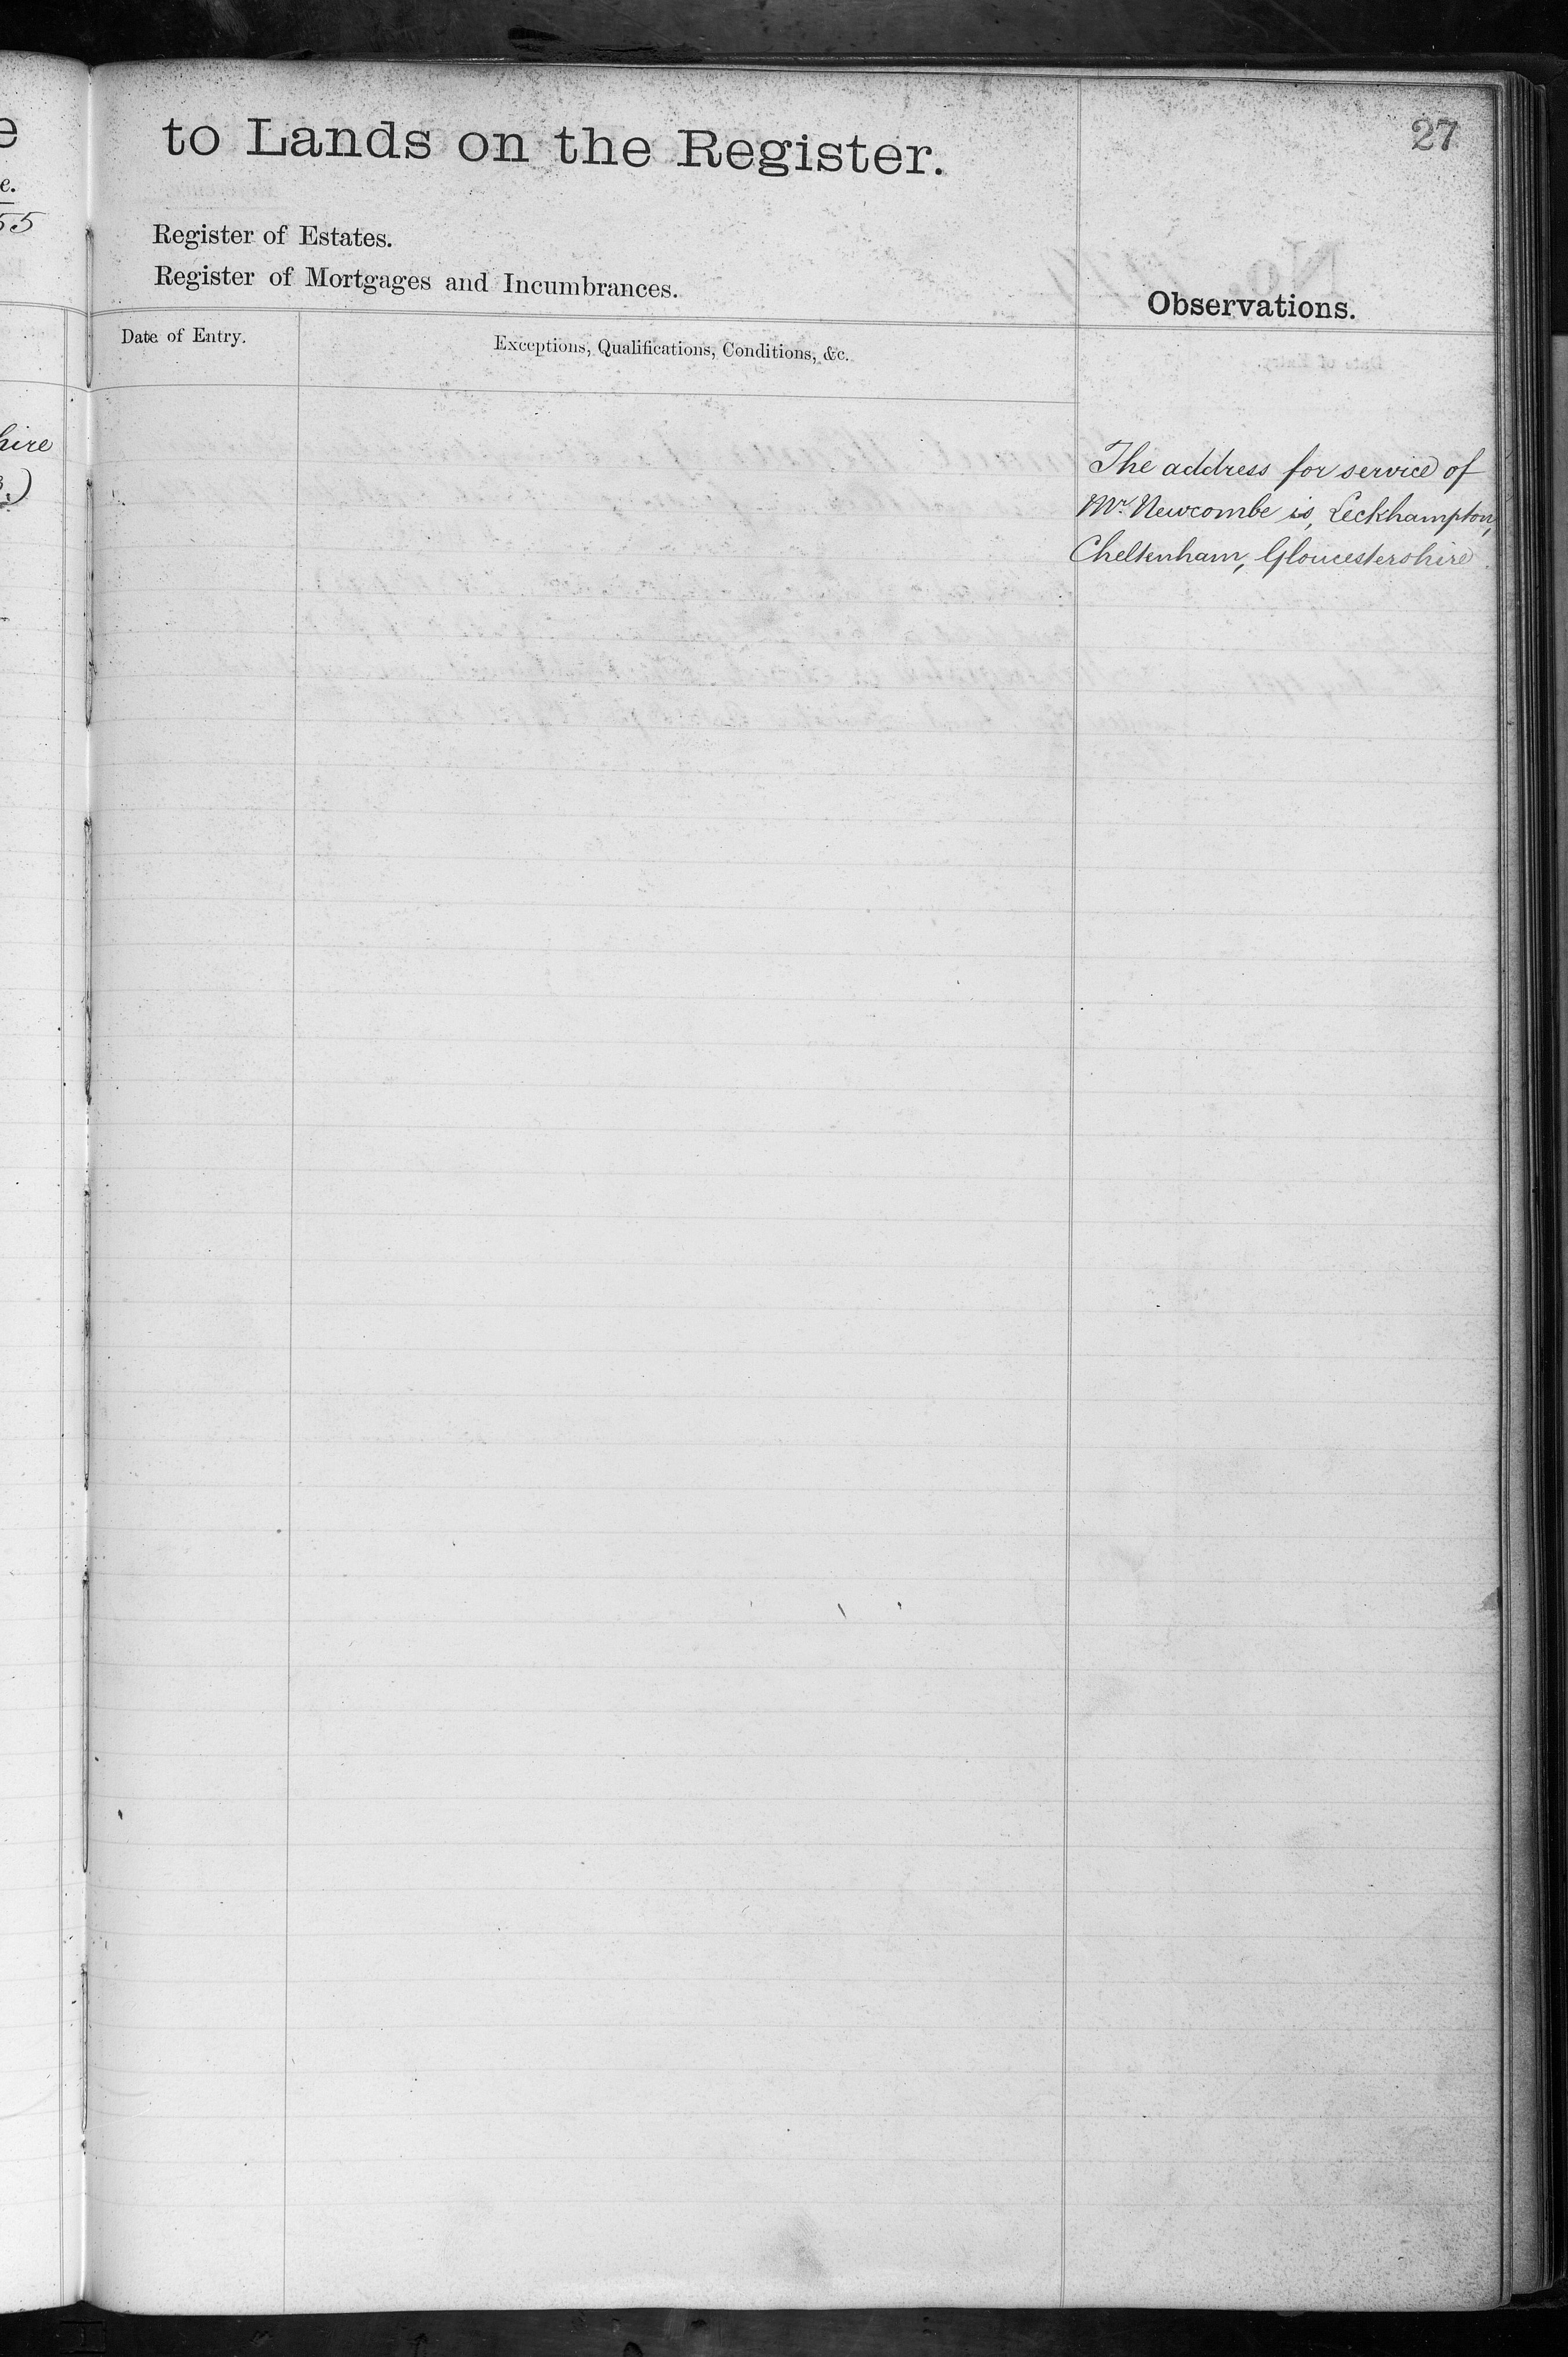 27
to Lands on the Register.
Register of Estates.
Register of Mortgages and Incumbrances.
Observations.
Date of Entry.
Exceptions, Qualifications, Conditions, &c.
The address for service of
Mr. Newcombe is, Leckhampton,
Cheltenham, Gloucestershire
e.
55
hire